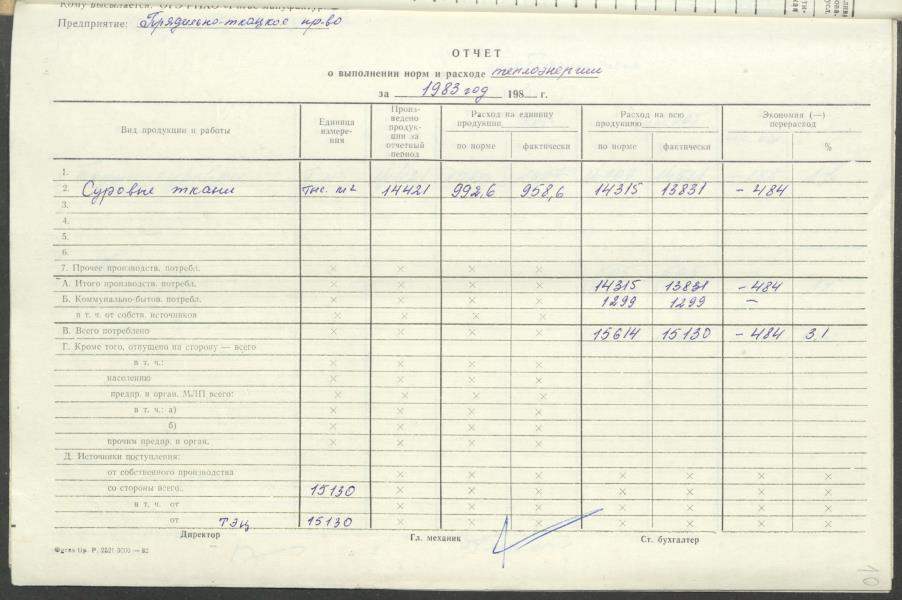 Предприятие: Прядильно-ткацкое пр-во
ОТЧЕТ
о выполнении норм и расходе теплоэнергии
за 1983 год 198 г.
Вид продукции и работы
Единица измере-ния
Произ-ведено продук-ции за отчетный период
Расход на единицу продукции
Расход на всю продукцию
Экономия (—) перерасход
по норме фактически по норме фактически %
1.
2. Суровые ткани тыс. м2 14421 992,6 958,6 14315 13831 - 484
3.
4.
5.
6.
7. Прочее производств. потребл. × × × ×
А. Итого производств. потребл. × × × × 14315 13831 - 484
Б. Коммунально-бытов. потребл. × × × × 1299 1299 —
в т. ч. от собств. источников × × × ×
В. Всего потреблено × × × × 15614 15130 - 484 3,1
Г. Кроме того, отпущено на сторону — всего
в т. ч.: × × × ×
населению × × × ×
предпр. и орган. МЛП всего: × × × ×
в т. ч.: а) × × × ×
б) × × × ×
прочим предпр. и орган. × × × ×
Д. Источники поступления:
от собственного производства × × × × × × ×
со стороны всего.. 15130 × × × × × × ×
в т. ч. от × × × × × × ×
от ТЭЦ 15130 × × × × × × ×
Директор Гл. механик Ст. бухгалтер
10